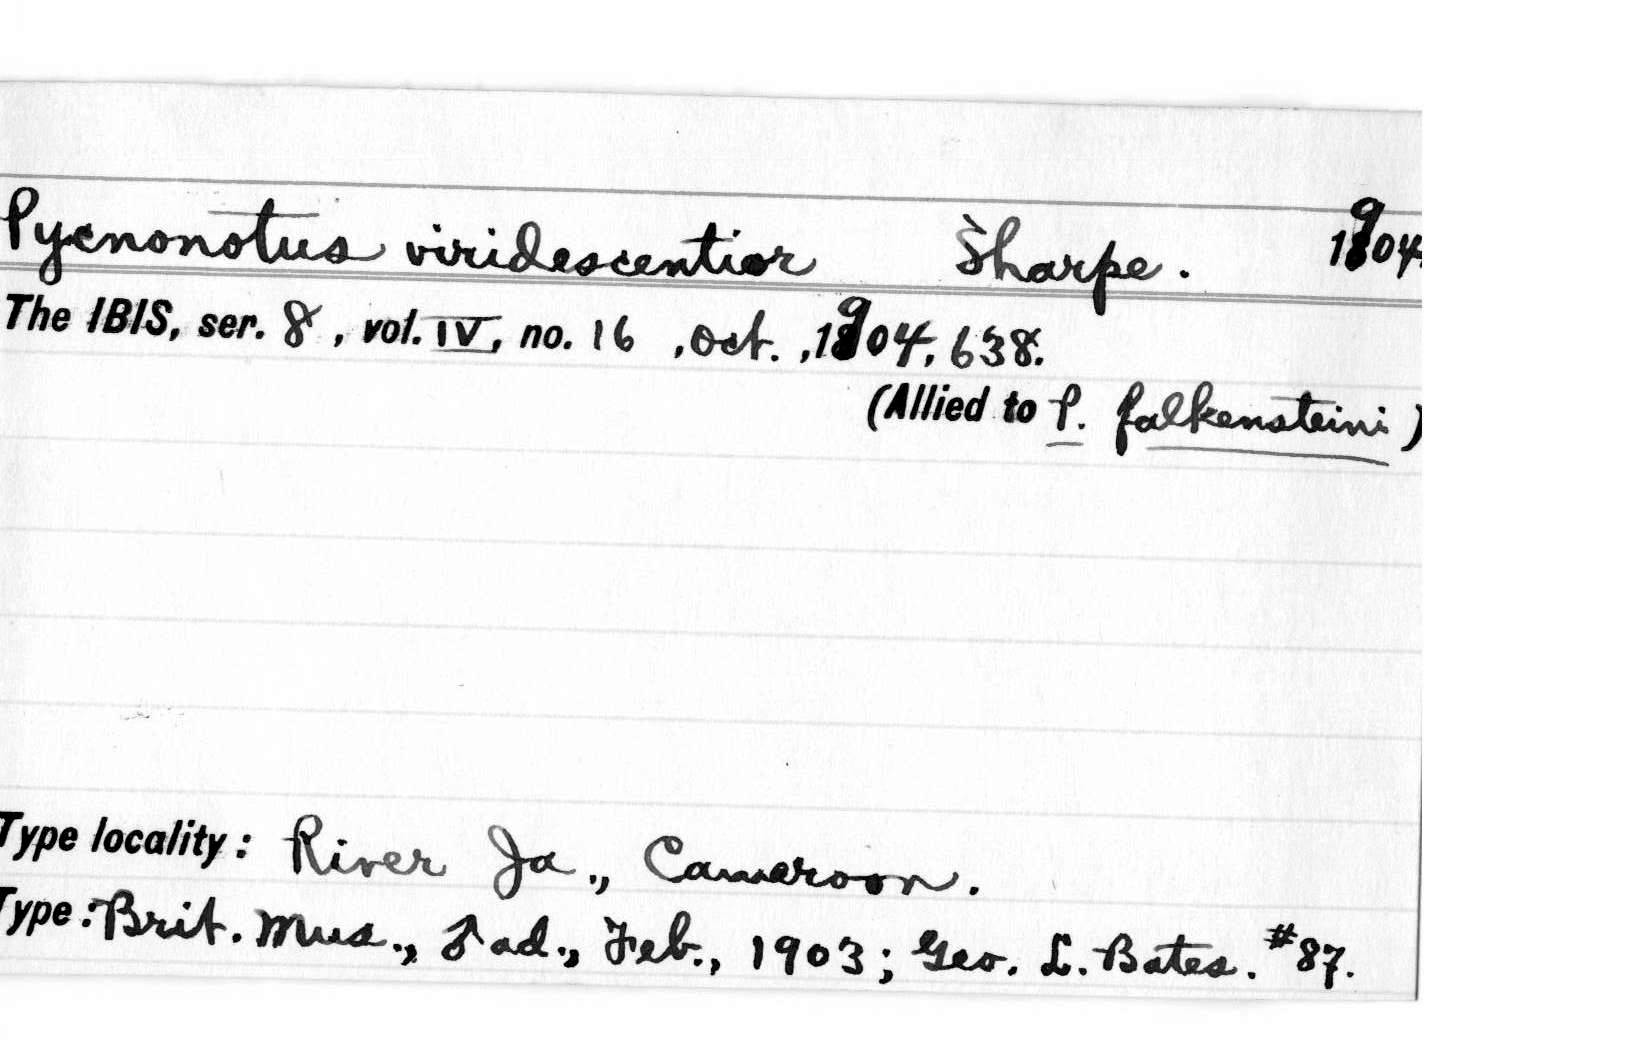 Pycnonotus viridescentior Sharpe. 1904.
The IBIS, ser. 8, vol. IV, no. 16, Oct., 1904, 638.
(Allied to P. falkensteini)
Type locality: River Ja., Cameroon.
Type: Brit. Mus., ♂ ad., Feb., 1903; Geo. L. Bates. #87.